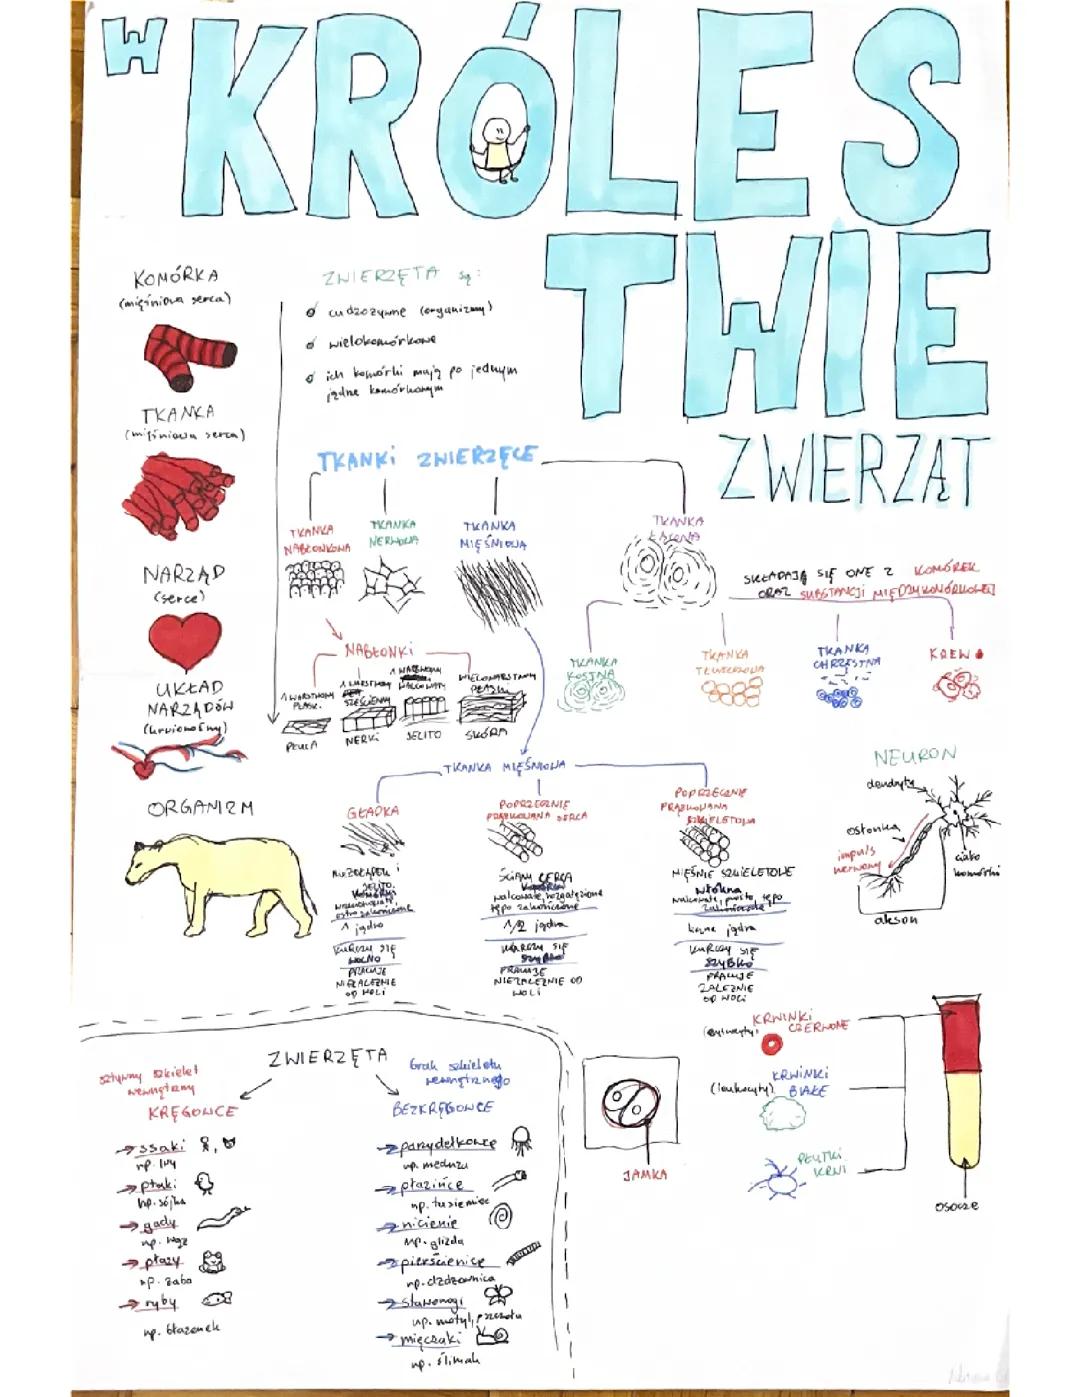 W KRÓLES
TWIE
ZWIERZĄT
KOMÓRKA
(mięśniowa serca)
TKANKA
(mięśniowa serca)
NARZĄD
(serce)
UKŁAD
NARZĄDÓW
(krwionośny)
ORGANIZM
ZWIERZĘTA są:
cudzożywne (organizmy)
wielokomórkowe
ich komórki mają po jednym
jądrze komórkowym
TKANKI ZWIERZĘCE
TKANKA
NABŁONKOWA
TKANKA
NERWOWA
TKANKA
MIĘŚNIOWA
TKANKA
ŁĄCZNA
SKŁADAJĄ SIĘ ONE Z KOMÓREK
ORAZ SUBSTANCJI MIĘDZYKOMÓRKOWEJ
NABŁONKI
1 WARSTWOWY
PŁASK.
PŁUCA
1 WARSTWOWY
SZEŚCIENNY
NERKI
1 WARSTWOWY
WALCOWATY
JELITO
WIELOWARSTWOWY
PŁASKI
SKÓRA
TKANKA
KOSTNA
TKANKA
TŁUSZCZOWA
TKANKA
CHRZĘSTNA
KREW
TKANKA MIĘŚNIOWA
GŁADKA
jelito
komórki
ostro zakończone
1 jądro
KURCZY SIĘ
WOLNO
PRACUJE
NIEZALEŻNIE
OD WOLI
POPRZECZNIE
PRĄŻKOWANA SERCA
ŚCIANY SERCA
komórki
walcowate, rozgałęzione
tępo zakończone
1/2 jądra
KURCZY SIĘ
SZYBKO
PRACUJE
NIEZALEŻNIE OD
WOLI
POPRZECZNIE
PRĄŻKOWANA
SZKIELETOWA
MIĘŚNIE SZKIELETOWE
włókna
walcowate, proste, tępo
zakończone
liczne jądra
KURCZY SIĘ
SZYBKO
PRACUJE
ZALEŻNIE
OD WOLI
NEURON
dendryty
osłonka
impuls
nerwowy
ciało
komórki
akson
ZWIERZĘTA
sztywny szkielet
wewnętrzny
KRĘGOWCE
ssaki
np. lwy
ptaki
np. sójka
gady
np. wąż
płazy
np. żaba
ryby
np. błazenek
brak szkieletu
wewnętrznego
BEZKRĘGOWCE
parzydełkowce
np. meduza
płazińce
np. tasiemiec
nicienie
np. glizda
pierścienice
np. dżdżownica
stawonogi
np. motyl, pszczoła
mięczaki
np. ślimak
JAMKA
KRWINKI
CZERWONE
(erytrocyty)
KRWINKI
BIAŁE
(leukocyty)
PŁYTKI
KRWI
osocze